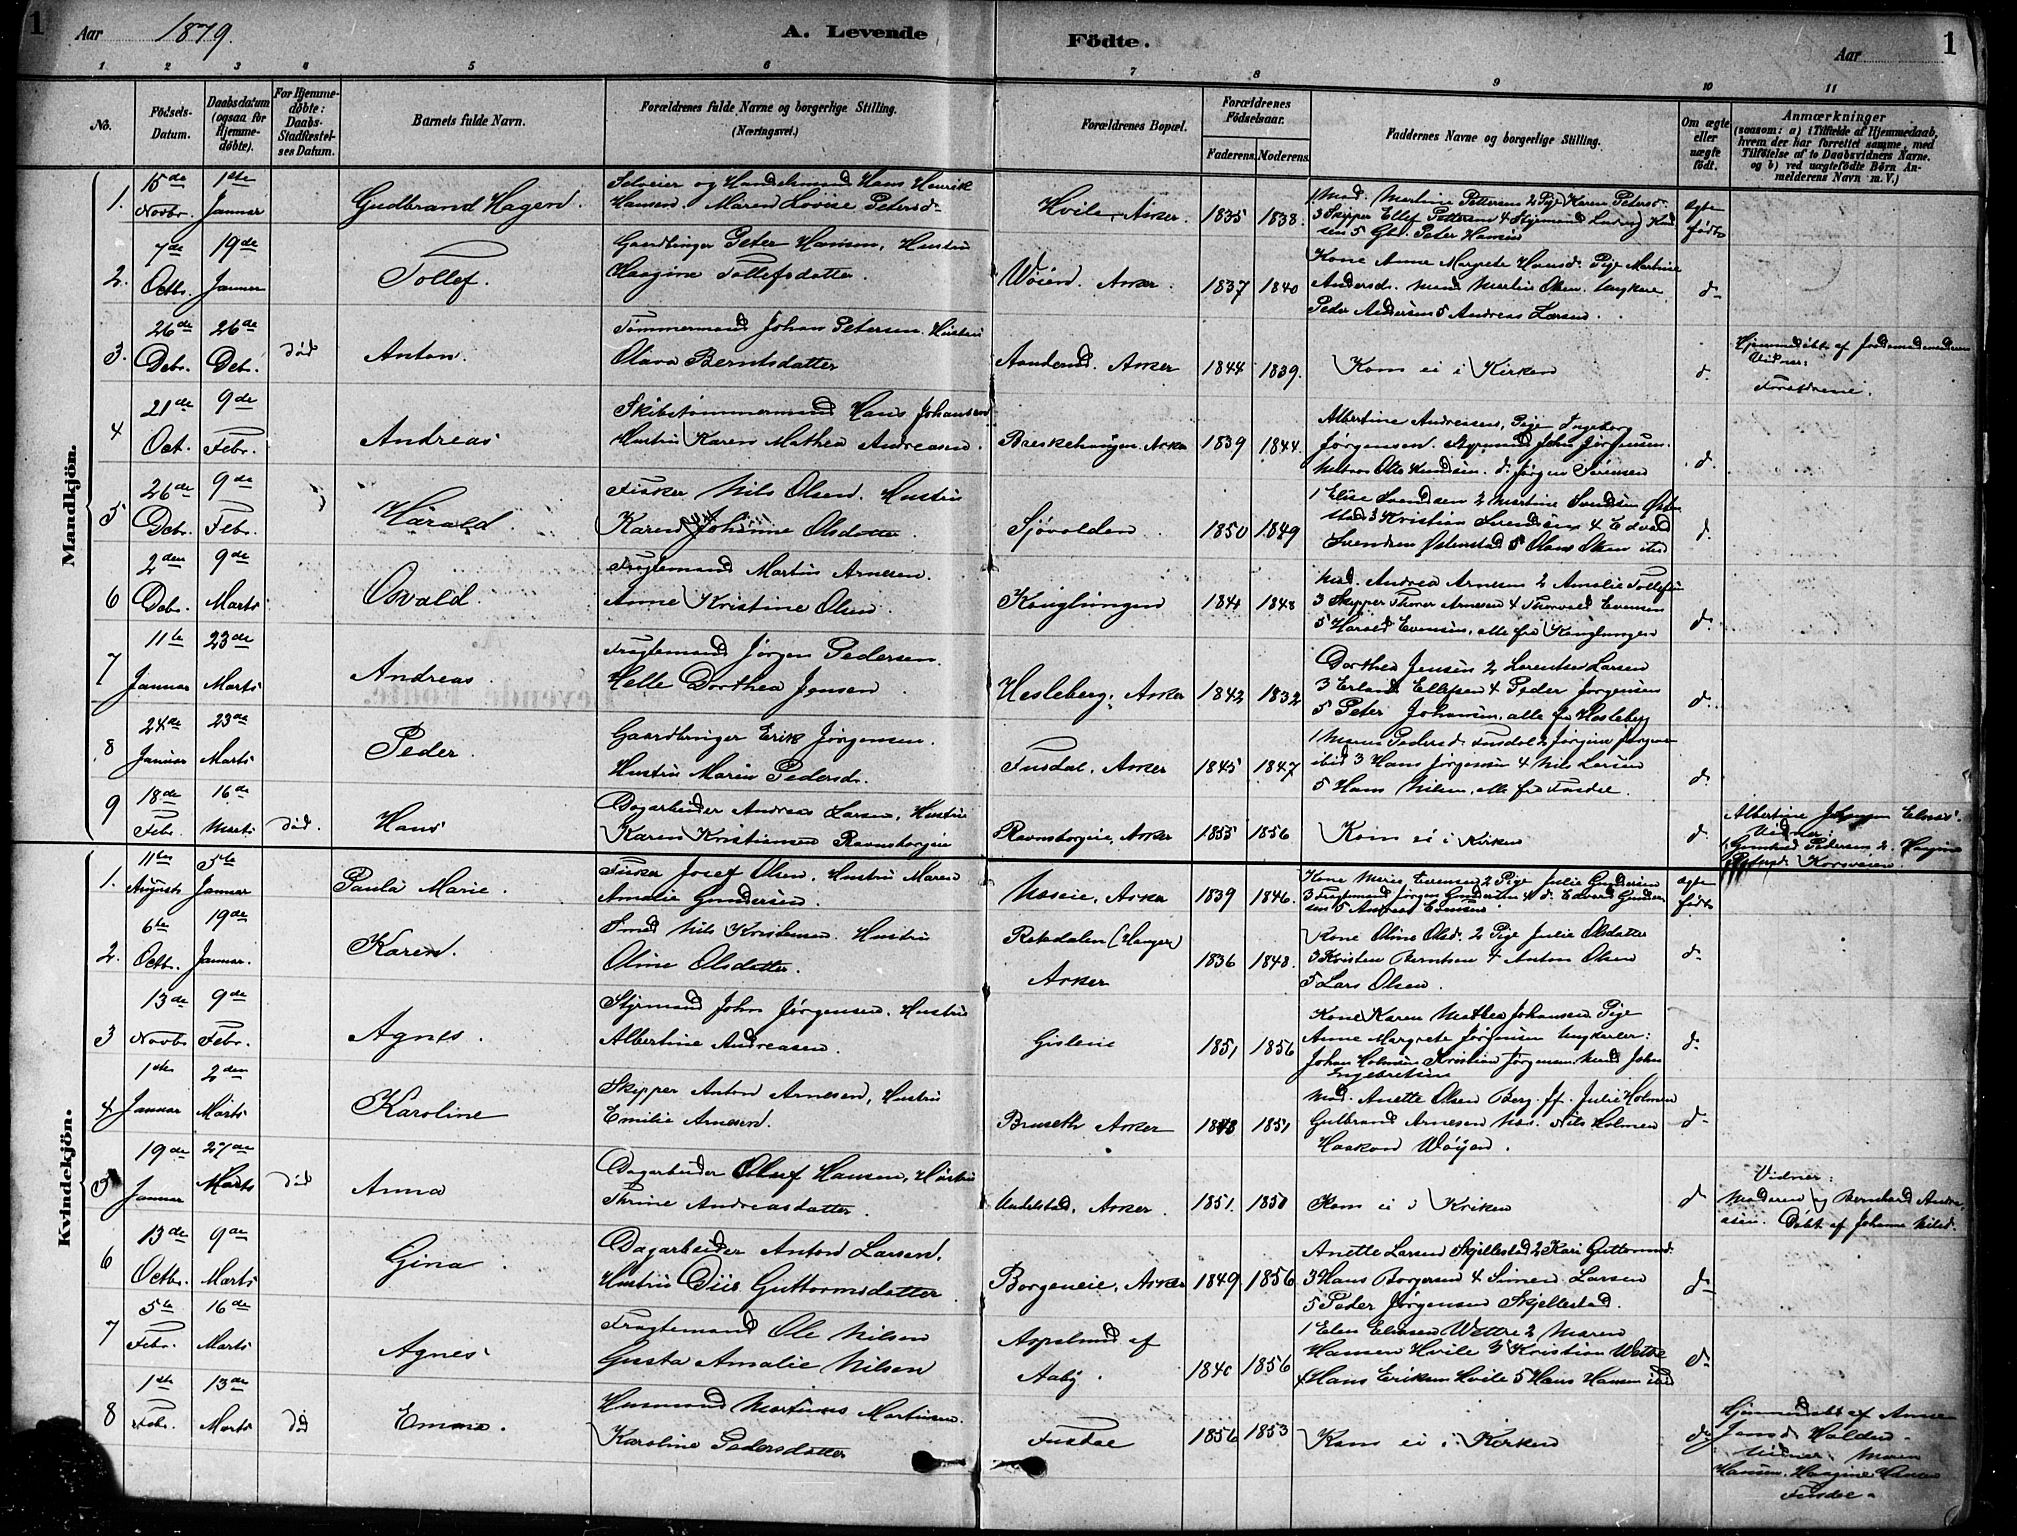 1 Aar 1879. A. Levende Födte. Aar 1
1 2 3 4 5 6 7 8 9 10 11
No.
Födsels-Datum.
Daabsdatum (ogsaa for Hjemme-døbte).
For Hjemme-døbte: Daabs-Stadfæstel-ses Datum.
Barnets fulde Navn.
Forældrenes fulde Navne og borgerlige Stilling. (Næringsvei.)
Forældrenes Bopæl.
Forældrenes Födselsaar.
Faderens. Moderens.
Faddernes Navne og borgerlige Stilling.
Om ægte eller uægte født.
Anmærkninger
(saasom: a) i Tilfælde af Hjemmedaab,
hvem der har forrettet samme, med
Tilföielse af to Daabsvidners Navne.
og b) ved uægtefödte Börn An-
melderens Navn m. V.)
Mandkjön.
1. 15de Novbr. 1ste Januar Gudbrand Hagen.
Selveier og Handelsmand Hans Henrik
Hansen. Maren Lovise Petersd.
Hvile, Asker. 1835 1838.
1 Mad. Martine Pettersen 2 Pige Karen Petersd.
3 Skipper Ellef Pettersen 4 Styrmand Ludvig
5 Gbr. Peter Hansen
ægte født
2. 7de Octbr. 19de Januar Tollef.
Gaardbruger Peter Hansen, Hustru
Haagine Tollefsdatter.
Wøien. Asker. 1837 1840
Kone Anne Margrete Hansd. Pige Martine
Andersd. Mand Martin Olsen. Ungkarl
Peder Andersen 5 Andreas Larsen.
do
3. 26de Debr. 26de Debr. død Anton.
Tømmermand Johan Petersen. Hustru
Olava Berntsdatter
Asker 1844 1839.
Kom ei i Kirken
d.
Hjemmedøbt af Jordemoderen
Vidner:
Forældrene.
4 21de Oct. 9de Febr. Andreas
Skibstømmermand Hans Johansen
Hustru Karen Mathea Andreasen.
Asker 1839 1844.
Albertine Andreasen, Pige Ingeborg
Jørgensen. Styrmand John Jørgensen.
Otto Knudsen. d. Jørgen Sørensen
d.
5 26de Debr. 9de Febr. Harald.
Fisker Nils Olsen. Hustru
Karen Johanne Olsdatter.
Sjøvolden 1850 1849
1 Elise Svendsen 2 Martine Svendsen Østen-
stad 3 Kristian Svendsen 4 Edvard
Svendsen Østenstad 5 Olaus Olsen ibid
d.
6 2den Debr. 9de Marts Osvald.
Fragtemand Martin Arnesen.
Anne Kristine Olsen.
Konglungen 1841 1848
Mad. Andrea Arnesen 2 Amalie Tollefsen
3 Skipper Thorer Arnesen 4 Thorvald Evensen
5 Harald Evensen, alle fra Konglungen
d.
7 11te Januar 23de Marts Andreas.
Fragtemand Jørgen Pedersen.
Helle Dorthea Jensen.
Hesleberg, Asker 1842 1832
Dorthea Jensen 2 Lorentse Larsen
3 Erland Ellefsen 4 Peder Jørgensen
5 Peter Johansen, alle fra Hesleberg
d.
8 24de Januar 23de Marts Peder.
Gaardbruger Erik Jørgensen.
Hustru Maren Pedersd.
Fusdal, Asker 1845 1847
1 Maren Pedersd. Fusdal 2 Jørgine Jørgens
ibid 3 Hans Jørgensen 4 Nils Larsen
5 Hans Nilsen, alle fra Fusdal.
d.
9 18de Febr. 16de Marts død. Hans
Dagarbeider Andreas Larsen, Hustru
Karen Kristiansen Ravnsborgeie
Ravnsborgeie, Asker 1855 1856
Kom ei i Kirken
d.
Albertine Johansen
Vidner:
1 Gunhild Pedersen 2. Hagine
Pedersd. Korsveien
Kvindekjön.
1. 11te Augusts 5te Januar Paula Marie.
Fisker Josef Olsen. Hustru Maren
Amalie Gundersen.
Næseie, Asker 1839 1846.
Kone Marie Evensen 2 Pige Julie Gundersen
3 Fragtemand Jørgen Gundersen 4 d. Edvard Gunder-
sen 5 Andreas Evensen
ægte født
2. 6te Octbr. 19de Januar. Karen.
Smed Nils Kristensen. Hustru
Oline Olsdatter.
Reksdalen (Hanger)
Asker 1836 1848.
Kone Oline Olsd. 2 Pige Julie Olsdatter
3 Kristen Berntsen 4 Anton Olsen
5 Lars Olsen.
d.
3 13de Novbr. 9de Febr. Agnes.
Styrmand John Jørgensen. Hustru
Albertine Andreasen.
Gisleeie 1851 1856
Kone Karen Mathea Johansen Pige
Anne Margrete Jørgensen Ungkarler:
Johan Holmsen Kristian Jørgensen Mand John
Engebretsen
d.
4 1ste Januar 2den Marts Karoline
Skipper Anton Arnesen, Hustru
Emilie Arnesen.
Bruseth Asker 1848 1851
Mad. Anette Olsen Berg. ff. Julie Holmen
Gulbrand Arnesen Næs. Nils Holmen
Haakon Wøyen.
d.
5 19de Januar 27de Marts død Anna
Dagarbeider Oluf Hansen, Hustru
Thrine Andreasdatter.
Undelstad, Asker. 1851. 1850
Kom ei i Kirken
d
Vidner:
Moderen og Bernhard Andre-
asen. Døbt af Johanne Nilsd.
6 13de Octbr. 9de Marts Gina.
Dagarbeider Anton Larsen.
Hustru Diis Guttormsdatter
Borgeneie, Asker 1849 1856
Anette Larsen Skjellestad 2 Kari Guttormsd.
3 Hans Borgersen 4 Simen Larsen
5 Peder Jørgensen Skjellestad.
d.
7 5te Febr. 16de Marts Agnes
Fragtemand Ole Nilsen
Gusta Amalie Nilsen
Aspelund af
Aaby. 1846 1856
1 Elen Eliasen Wettre 2 Maren
Hansen Hvile 3 Kristian Wettre
4 Hans Eriksen Hvile 5 Hans Hansen ibid
d.
8 1ste Febr. 13de Marts død Emma.
Husmand Martinus Martinsen.
Karoline Pedersdatter
Fusdal 1856 1853
Kom ei i Kirken
d.
Hjemmedøbt af Anne
Jensd. Holden.
Vidner: Maren
Hansen, Haagine Hansen
Fusdal.